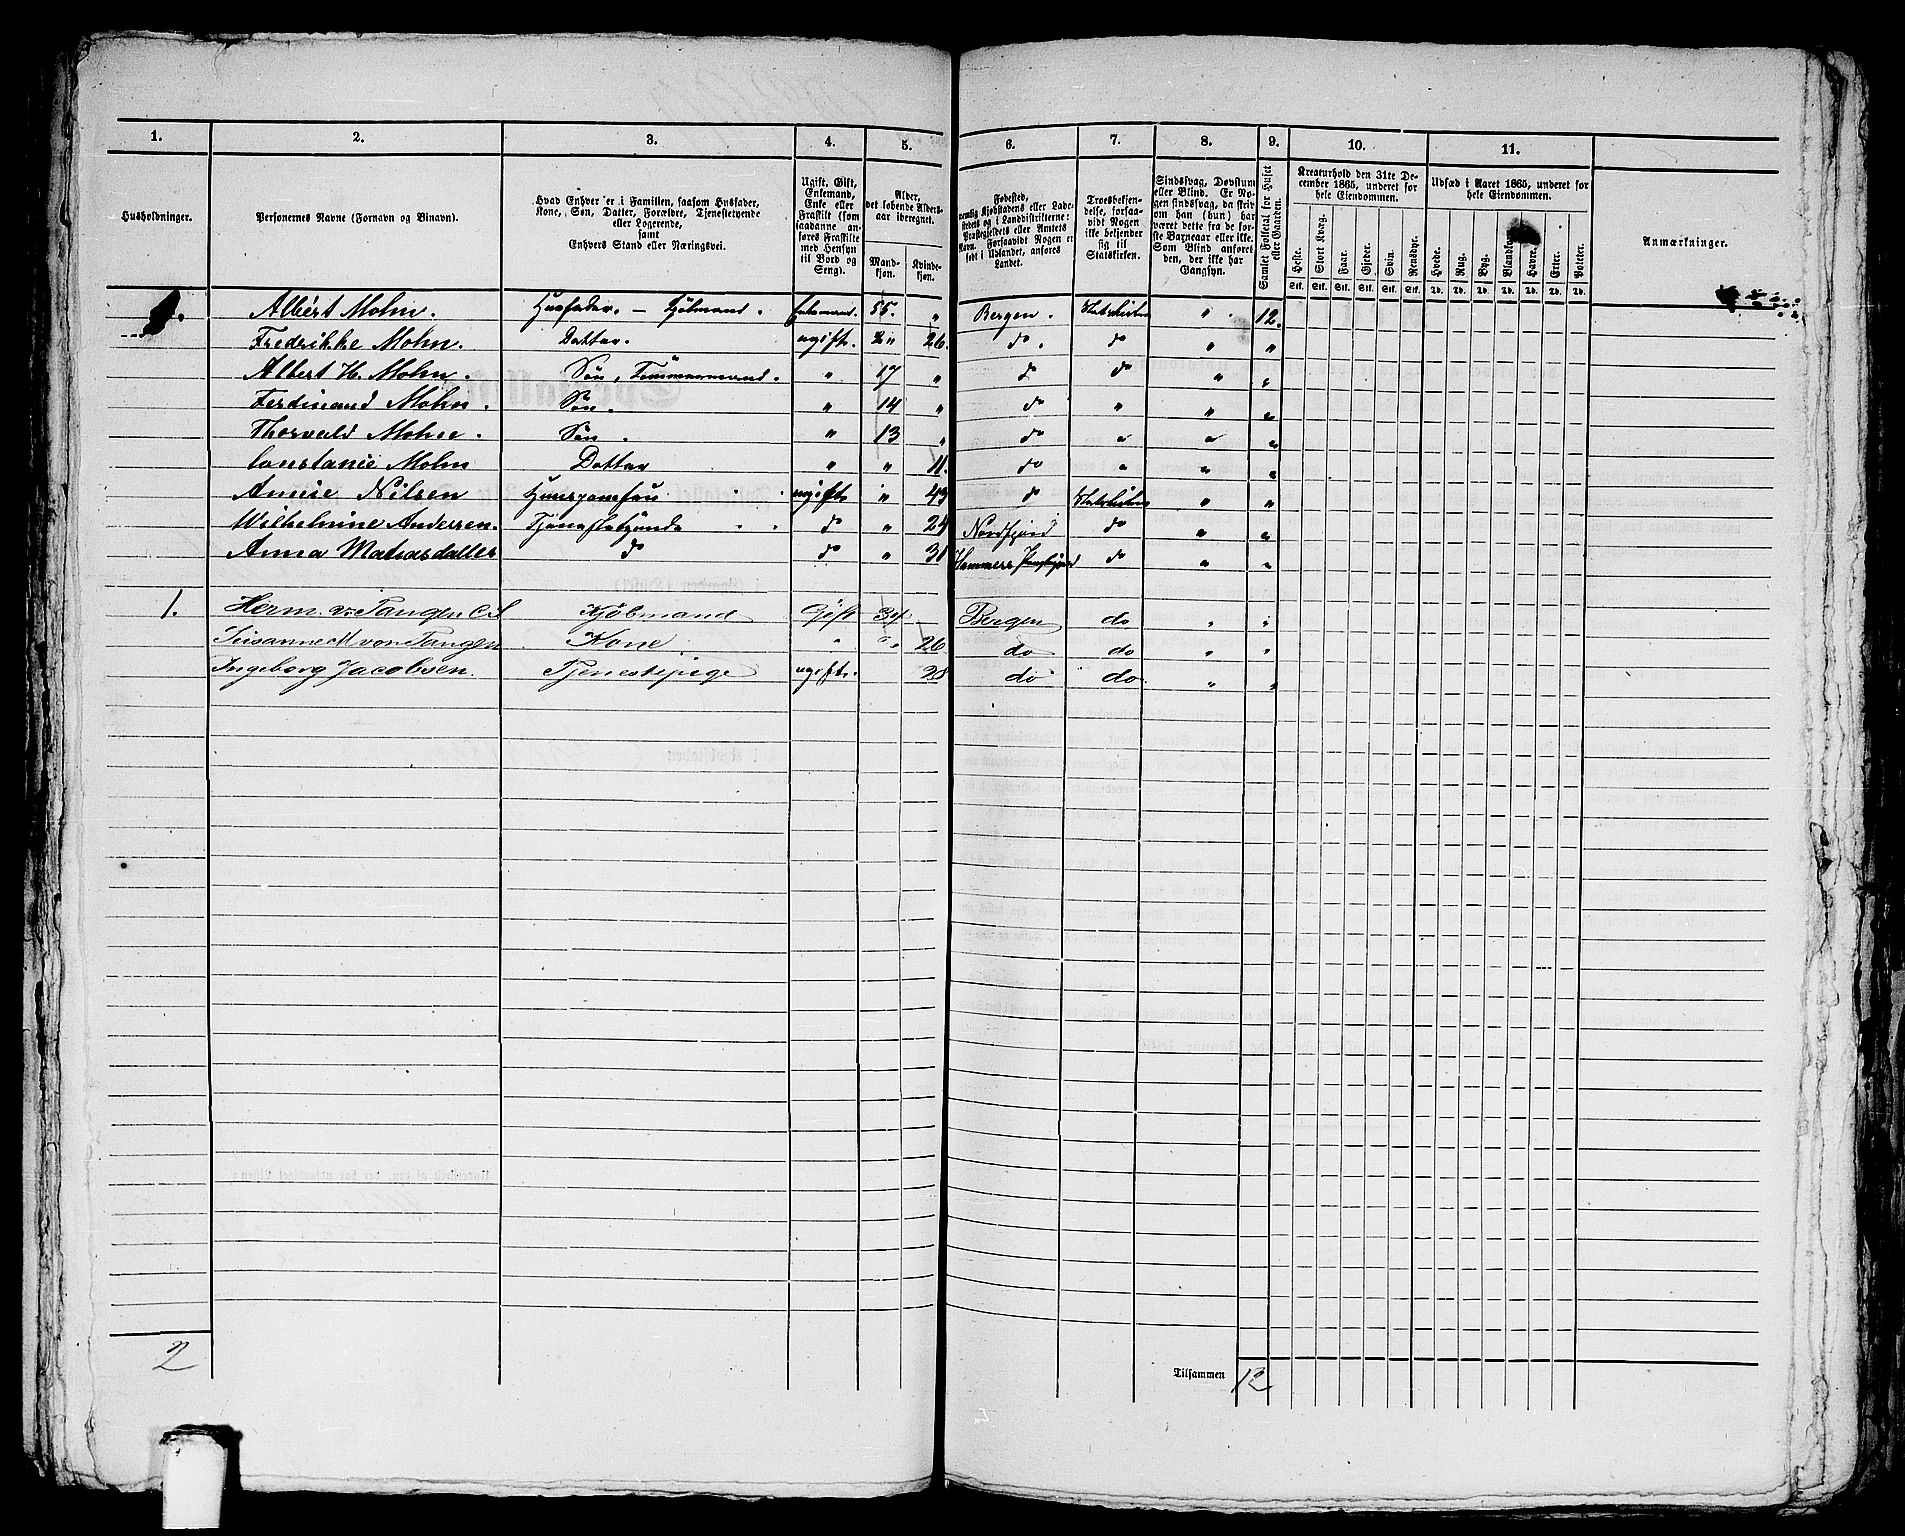 1. 2. 3. 4. 5. 6. 7. 8. 9. 10. 11.
Husholdninger.
Personernes Navne (Fornavn og Binavn).
Hvad Enhver er i Familien, saasom Husfader,
Kone, Søn, Datter, Forældre, Tjenestetyende
eller Logerende,
samt
Enhvers Stand eller Næringsvei.
Ugift, Gift,
Enkemand,
Enke eller
Fraskilt (som
saadanne an-
føres Fraskilte
med Hensyn
til Bord og
Seng).
Alder,
det løbende Alders-
aar iberegnet.
Mand-
kjøn.
Kvinde-
kjøn.
Fødested,
nemlig Kjøbstadens eller Lade-
stedets og i Landdistrikterne:
Præstegjeldets eller Amtets
Navn. Forsaavidt Nogen er
født i Udlandet, anføres
Landet.
Troesbekjen-
delse, forsaa-
vidt Nogen
ikke bekjender
sig til
Statskirken.
Sindssvag, Døvstum
eller Blind. Er No-
gen sindssvag, da skriv
om han (hun) har
været dette fra de før-
ste Barneaar eller ikke.
Som Blind anføres
den, der ikke har
Gangsyn.
Samlet Folketal for Huset
eller Gaarden.
Kreaturhold den 31te De-
cember 1865, underet for
hele Eiendommen.
Heste. Stort Kvæg. Faar. Gjeder. Svin. Rensdyr.
Stk. Stk. Stk. Stk. Stk. Stk.
Udsæd i Aaret 1865, underet for
hele Eiendommen.
Hvede. Rug. Byg. Blandkorn. Havre. Erter. Poteter.
Td. Td. Td. Td. Td. Td. Td.
Anmærkninger.
Albert Mohn. Husfader. – Kjøbmand. Enkemand. 55. " Bergen. Statskirken " 12.
Fredrikke Mohn. Datter. ugift. " 26. do. do " "
Albert H. Mohn. Søn, Tømmermand. " 17 " do do " "
Ferdinand Mohn. Søn. " 14 " do " " "
Thorvald Mohn. Søn. " 13 " do " " "
Constance Mohn Datter " " 11. do " " "
Amise Nilsen ugift " 43 do Statskirken " "
Wilhelmine Andersen. do " 24 Nordfjord do " "
Anna do do " 31 do " "
1. Herm. v. Tangen Kjøbmand Gift 34 Bergen do " "
Susanne M von Tangen Kone " " 26 do do " "
Ingeborg Jacobsen. Tjenestepige ugift. 28 do do " "
2
Tilsammen 12